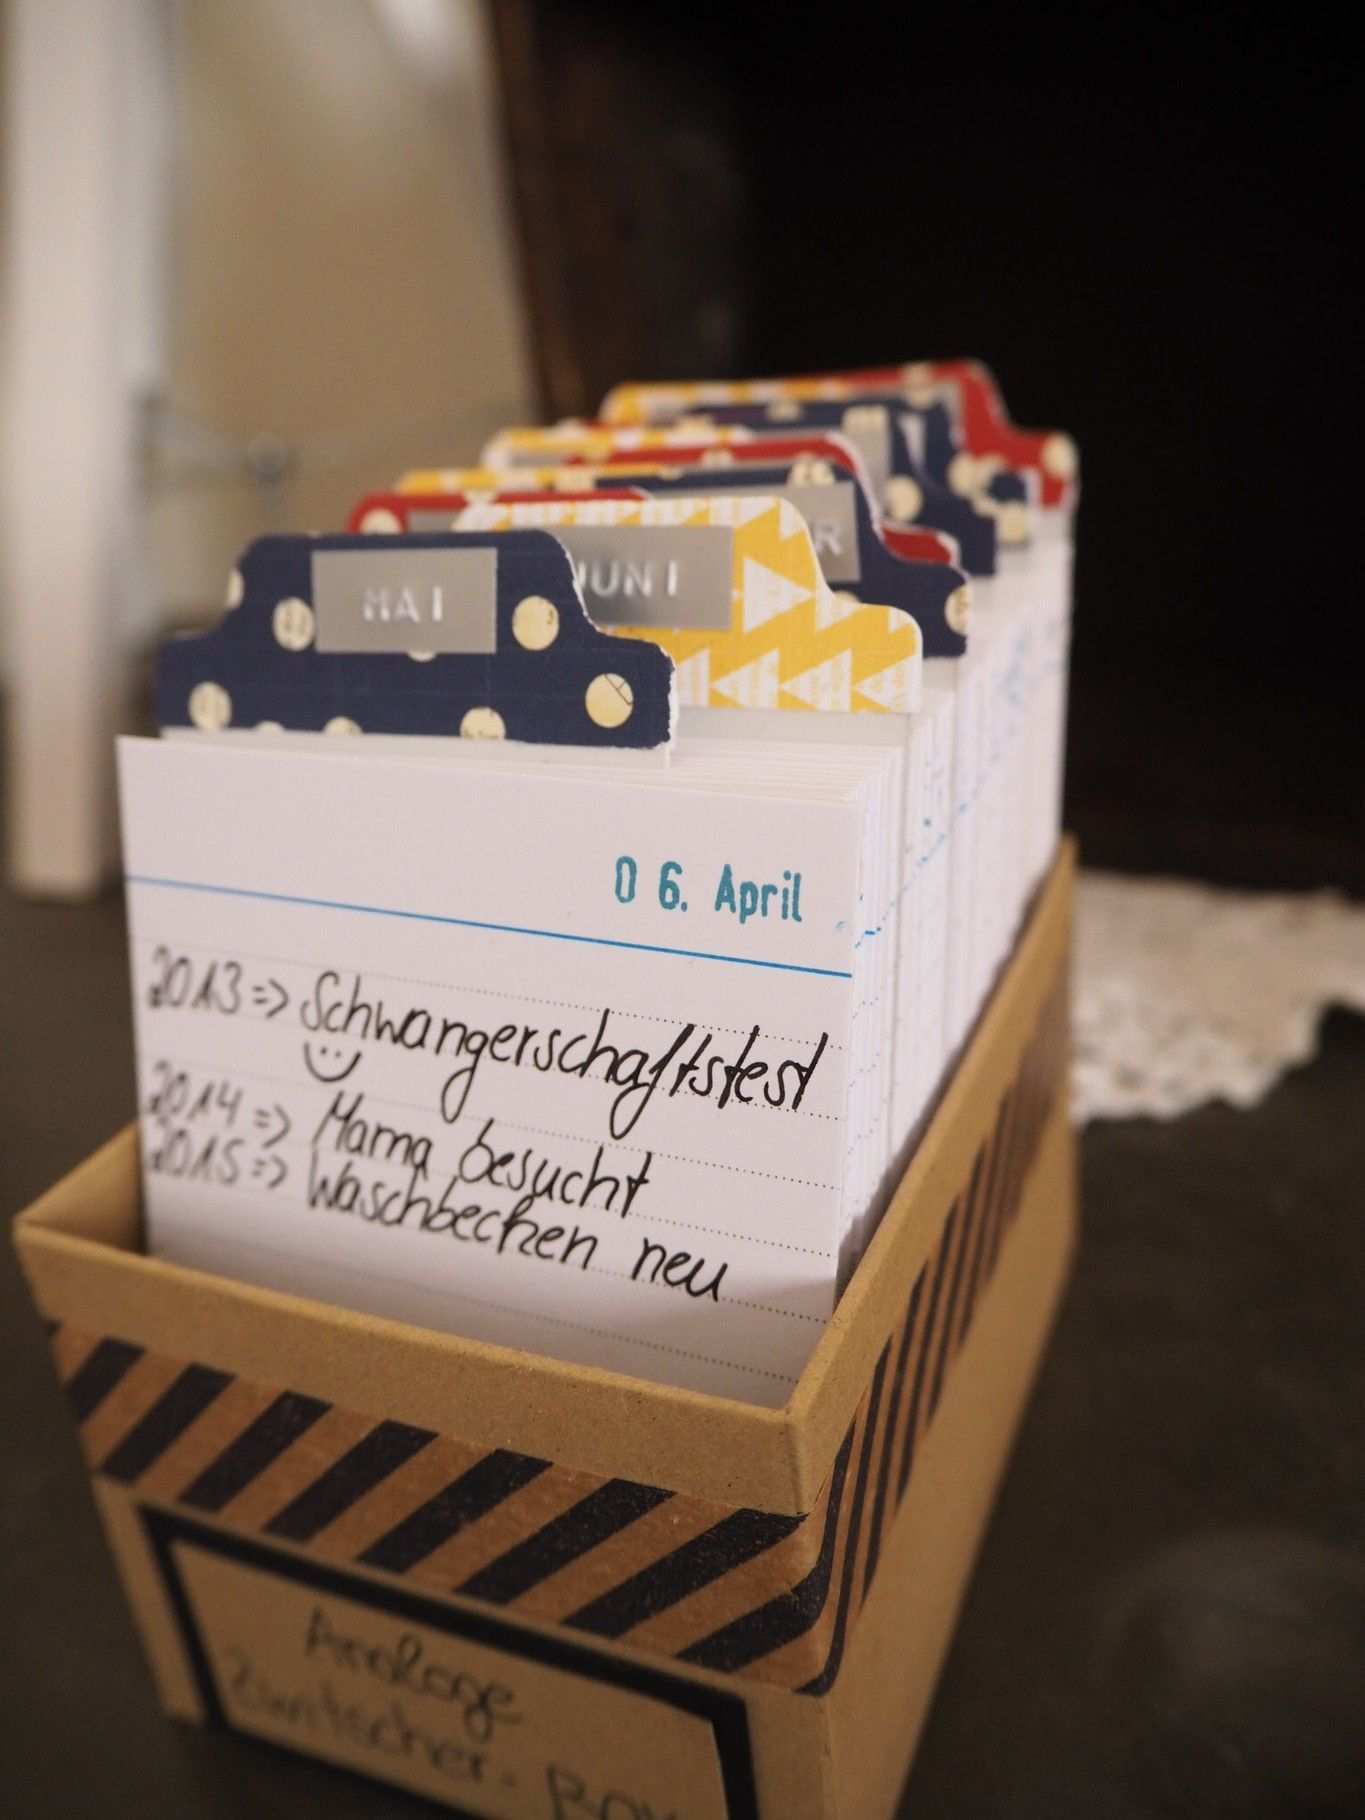 MAI
JUNI
06. April
2013 => Schwangerschaftstest
2014 => Mama besucht
2015 => Waschbecken neu
Analoge
Zwitscher-Box